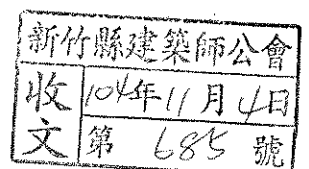 新竹縣建築師公會
收文
104年11月4日
第 685 號